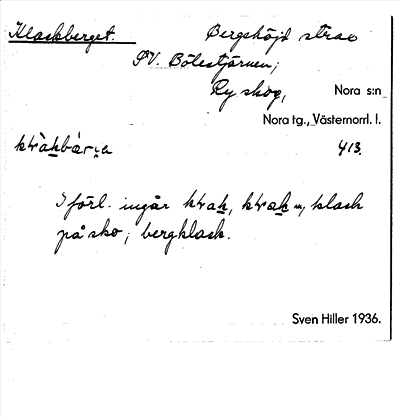 Klackberget. Bergshöjd strax
SV. Bölestjärnen;
Ry skog, Nora s:n
Nora tg., Västernorrl. l.
413.
I förl. ingår
klack
på sko; bergklack.
Sven Hiller 1936.